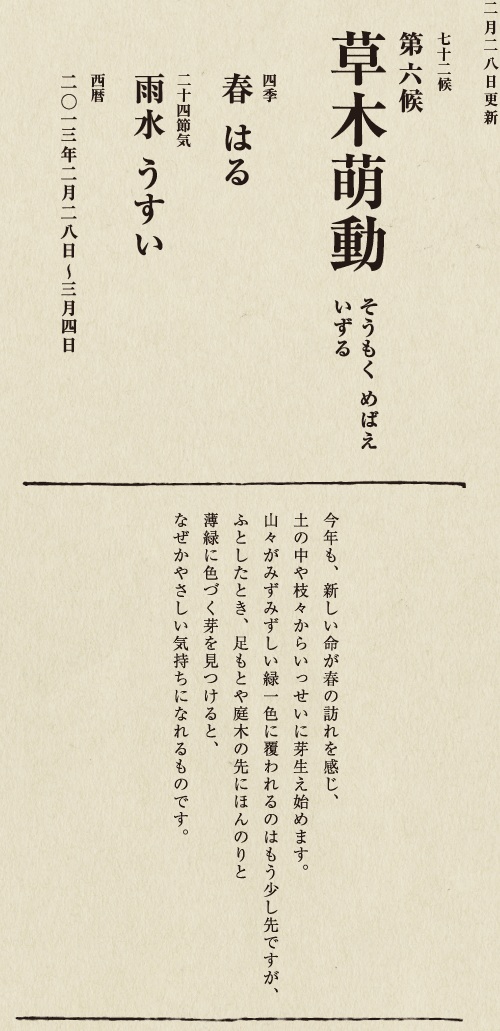 二月二八日更新
七十二候
第六候
草木萌動
そうもく めばえ
いずる
四季
春 はる
二十四節気
雨水 うすい
西暦
二〇一三年二月二八日〜三月四日
今年も、新しい命が春の訪れを感じ、
土の中や枝々からいっせいに芽生え始めます。
山々がみずみずしい緑一色に覆われるのはもう少し先ですが、
ふとしたとき、足もとや庭木の先にほんのりと
薄緑に色づく芽を見つけると、
なぜかやさしい気持ちになれるものです。